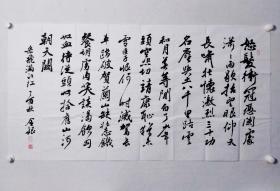 怒髮衝冠憑闌處
瀟瀟雨歇抬望眼仰天
長嘯壯懷激烈三十功
名塵與土八千里路雲
和月莫等閒白了少年
頭空悲切靖康恥猶未
雪臣子恨何時滅駕長
車踏破賀蘭山缺壯志飢
餐胡虜肉笑談渴飲匈奴
血待從頭收拾舊山河
朝天闕
岳飛滿江紅丁酉秋